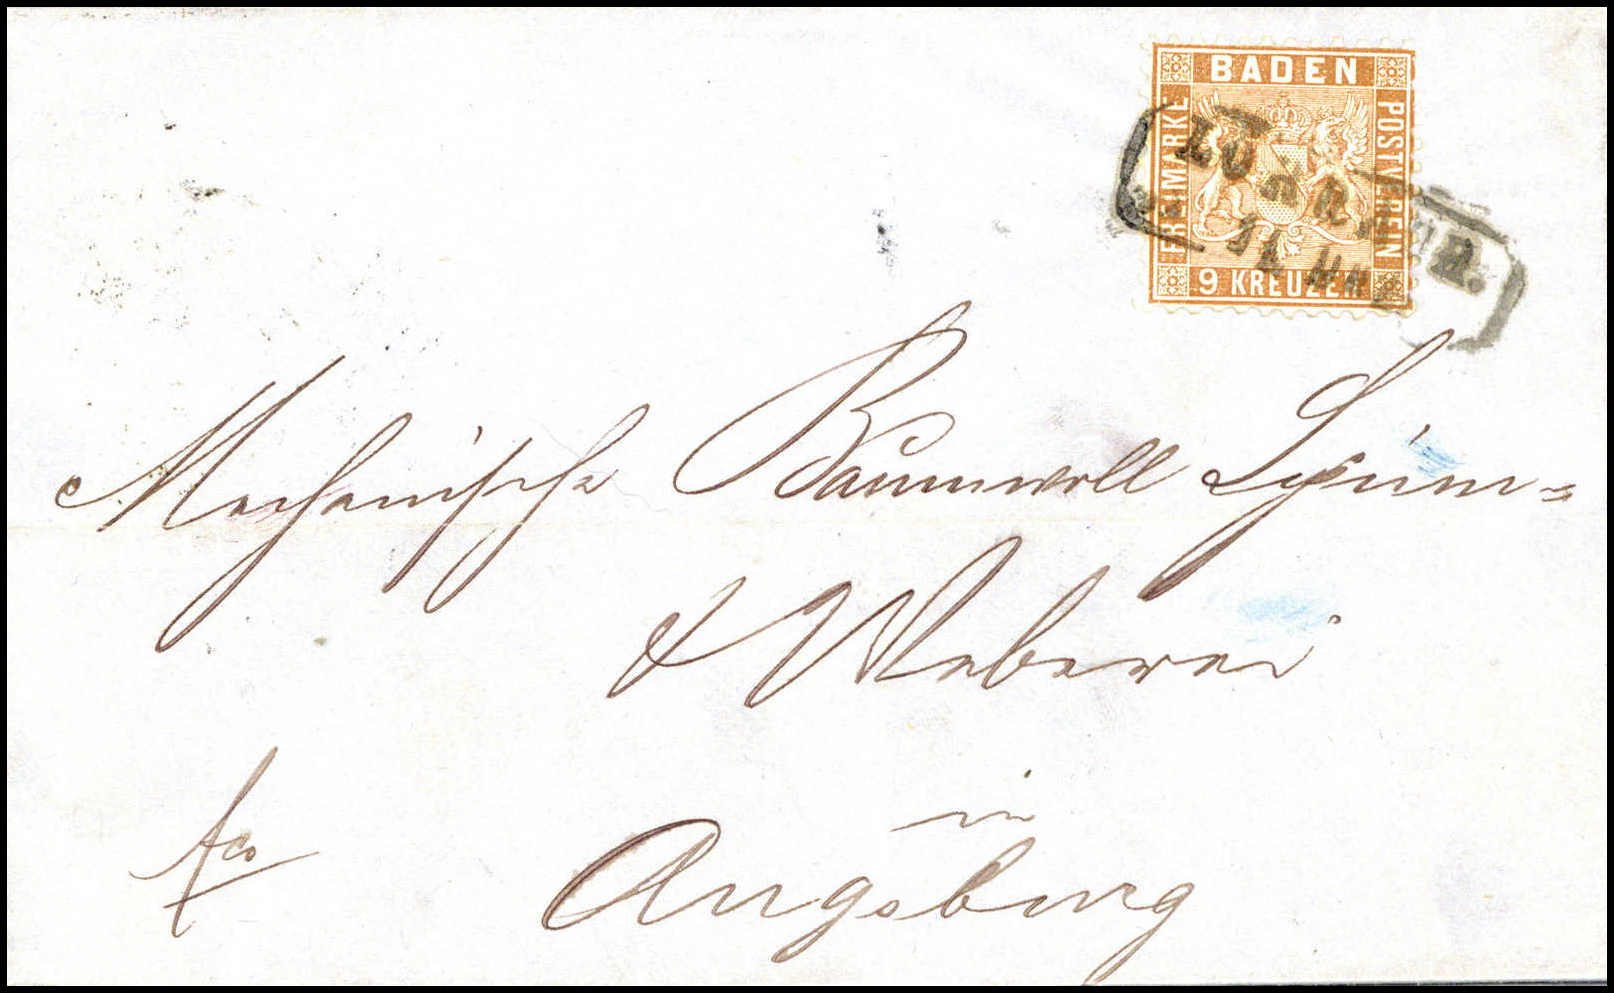 BADEN
FREIMARKE
POSTVEREIN
9 KREUZER
LÖRRACH.
Mechanische Baumwoll Spinn=
& Weberei
in
fco Augsburg